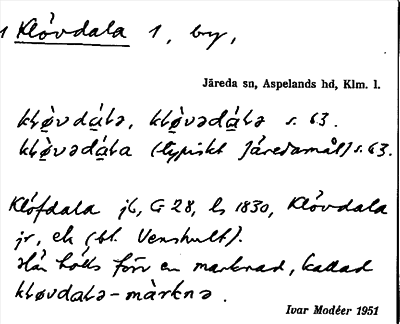 1 Klövdala 1, by,
Järeda sn, Aspelands hd, Klm. l.
kḷø̀vdáḷa, kḷø̀vədáḷə s. 63.
kḷø̀vədáḷa (typiskt Järedamål) s. 63.
Klöfdala jb, G 28, ls 1830, Klövdala
jr, ek (bl. Venshult).
Här hölls förr en marknad, kallad
kḷøvdaḷə-màrknə.
Ivar Modéer 1951